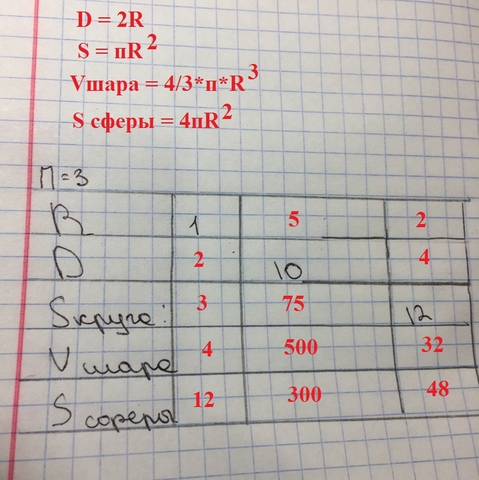 D = 2R
S = пR²
Vшара = 4/3*п*R³
S сферы = 4пR²
П=3
R 1 5 2
D 2 10 4
Sкруга: 3 75 12
V шара 4 500 32
S сферы 12 300 48